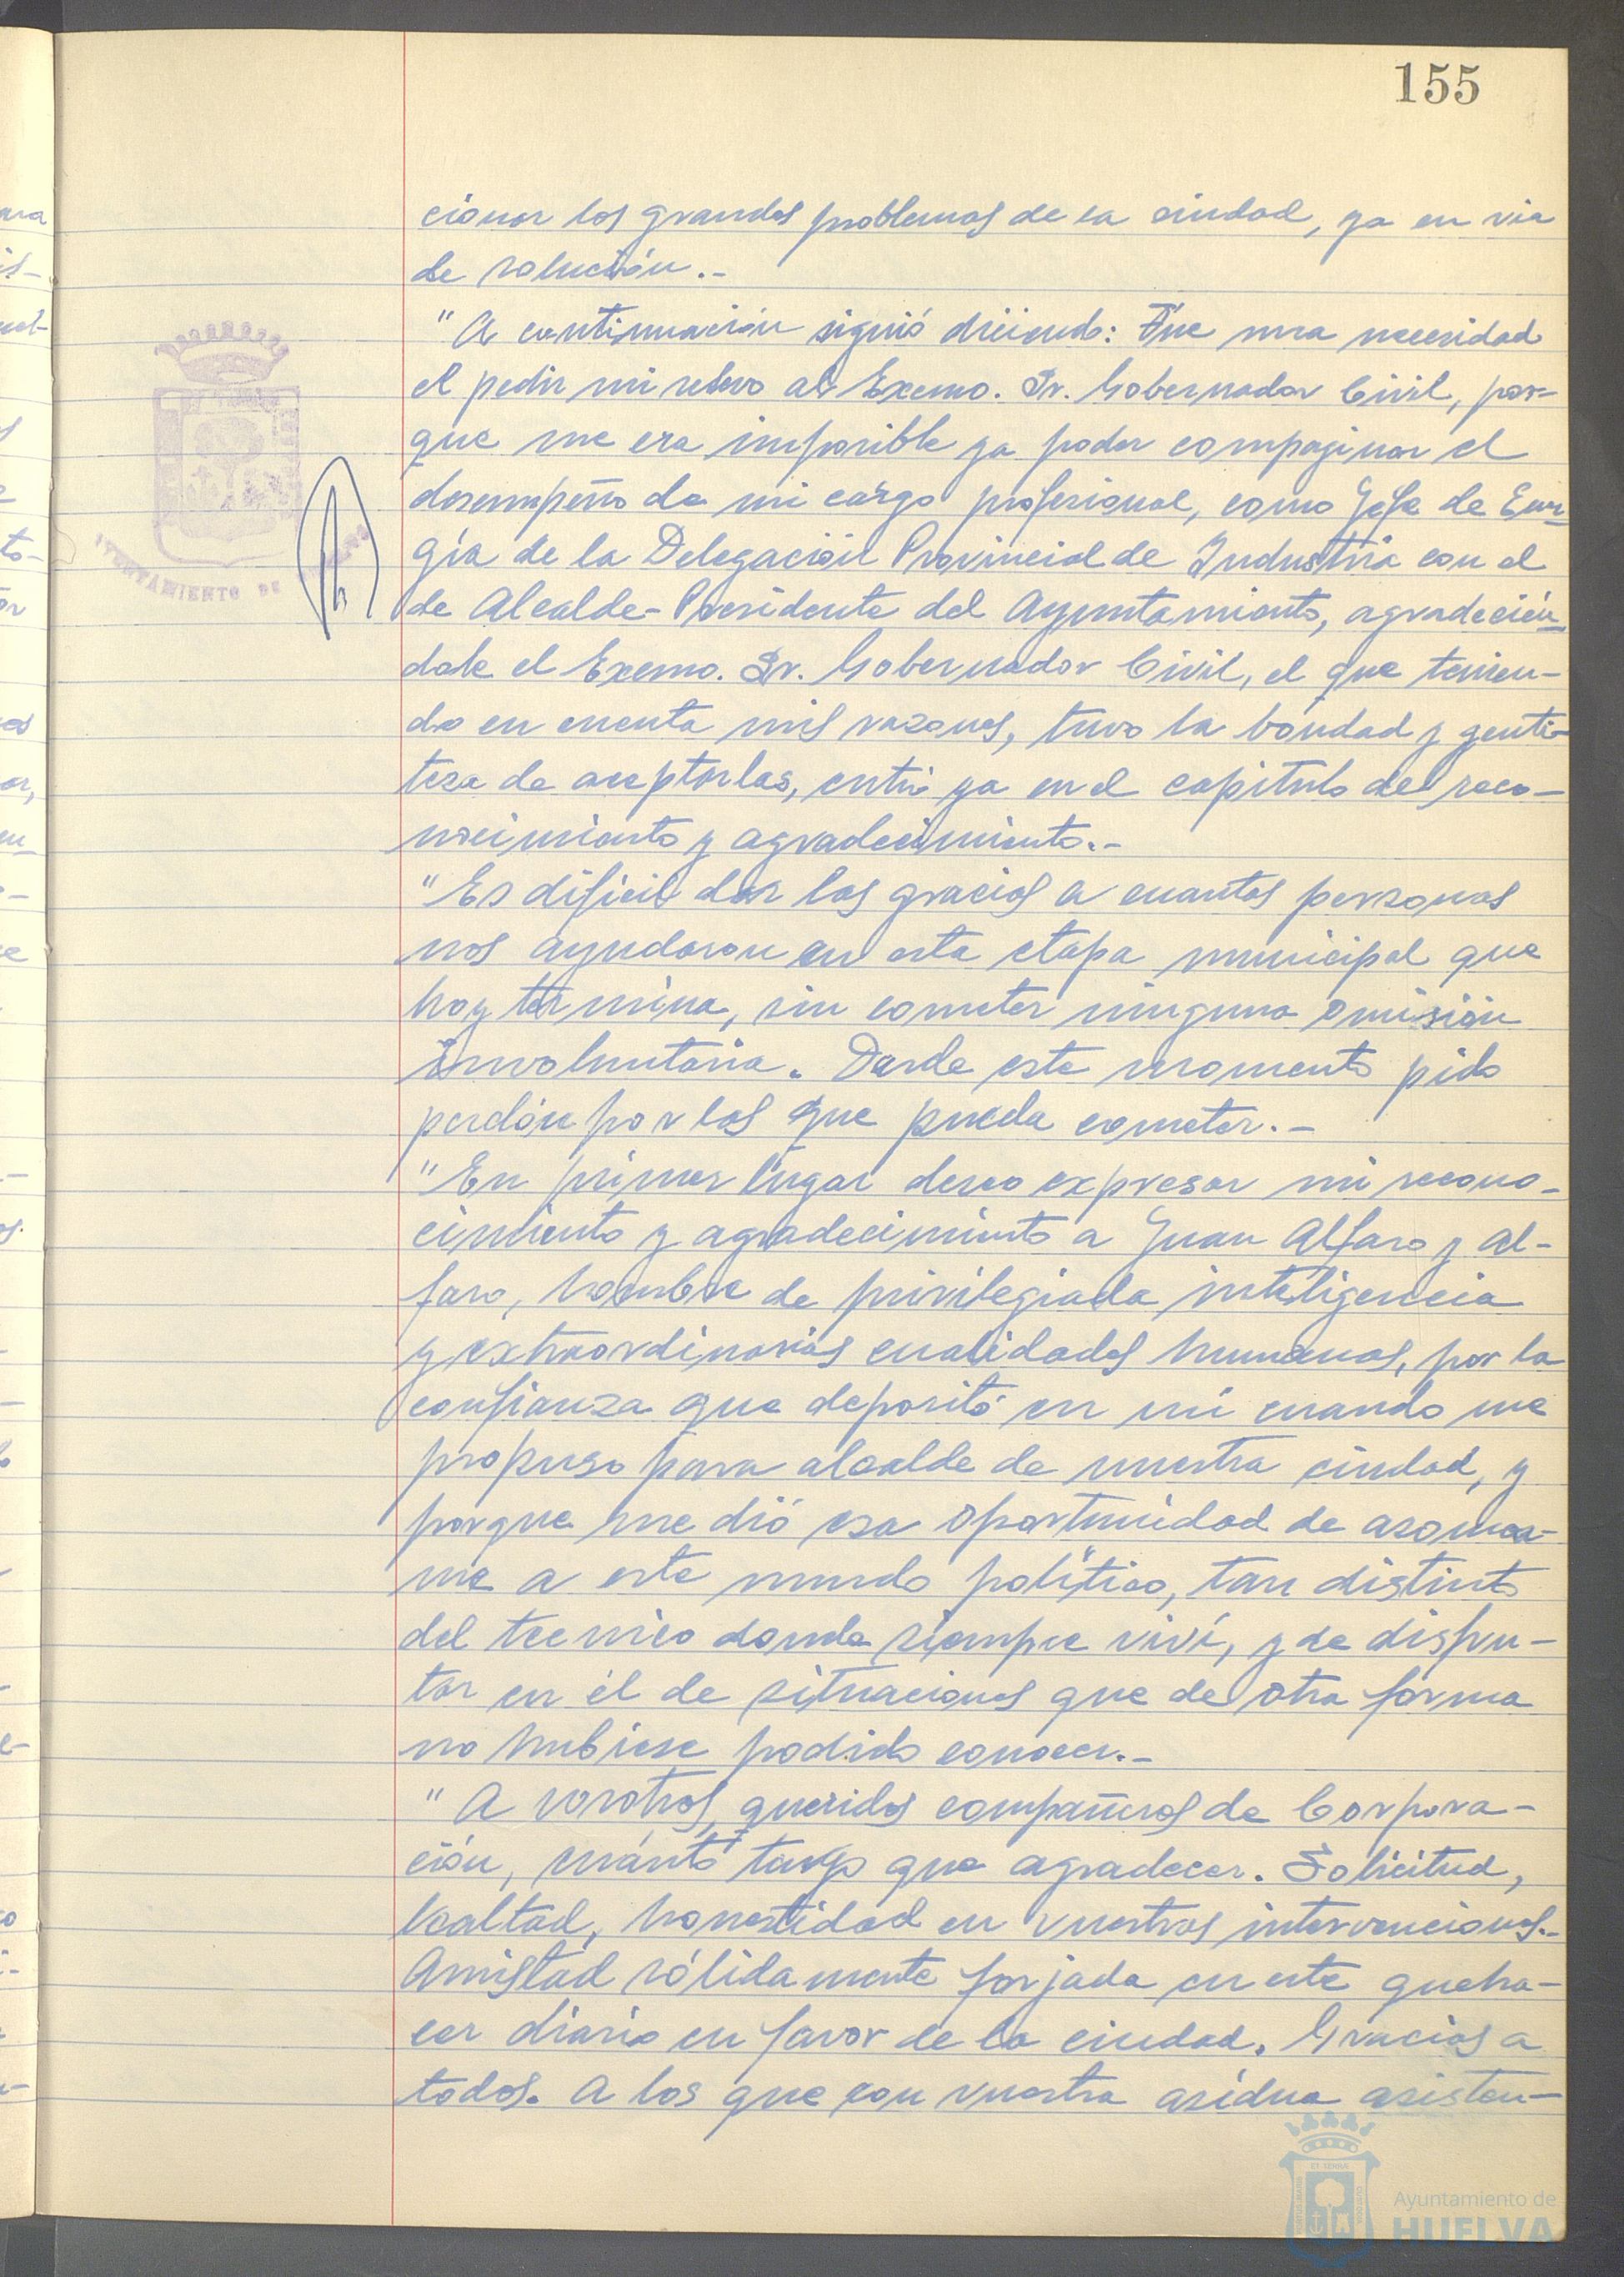 155
cionar los grandes problemas de la ciudad, ya en via
de solución.-
"A continuación siguió diciendo: Fue una necesidad
el pedir mi relevo al Excmo. Sr. Gobernador Civil, por-
que me era imposible ya poder compaginar el
desempeño de mi cargo profesional, como Jefe de Ener-
gía de la Delegación Provincial de Industria con el
de Alcalde-Presidente del Ayuntamiento, agradecién-
dole el Excmo. Sr. Gobernador Civil, el que tenien-
do en cuenta mis razones, tuvo la bondad y genti-
leza de aceptarlas, entró ya en el capitulo del reco-
nocimiento y agradecimiento.-
"Es dificil dar las gracias a cuantas personas
nos ayudaron en esta etapa municipal que
hoy termina, sin cometer ninguna omisión
involuntaria. Desde este momento pido
perdón por las que pueda cometer.-
"En primer lugar deseo expresar mi recono-
cimiento y agradecimiento a Juan Alfaro y Al-
faro, hombre de privilegiada inteligencia
y extraordinarias cualidades humanas, por la
confianza que depositó en mi cuando me
propuso para alcalde de nuestra ciudad, y
porque me dió esa oportunidad de asomar-
me a este mundo político, tan distinto
del tecnico donde siempre viví, y de disfru-
tar en él de situaciones que de otra forma
no hubiese podido conocer.-
"A vosotros, queridos compañeros de Corpora-
ción, cuánto tengo que agradecer. Solicitud,
lealtad, honestidad en vuestras intervenciones.-
Amistad sólidamente forjada en este queha-
cer diario en favor de la ciudad. Gracias a
todos. A los que con vuestra asidua asisten-
AYUNTAMIENTO DE
Ayuntamiento de
HUELVA